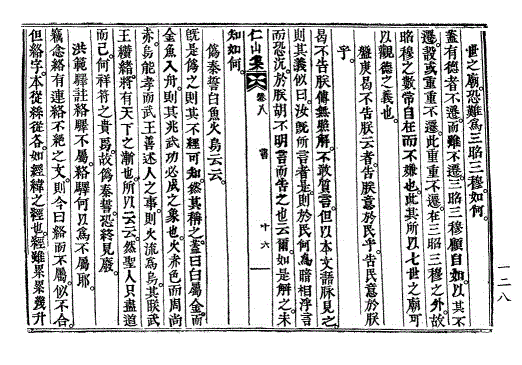 世之廟。恐難爲三昭三穆如何。
蓋有德者不遷。而雖不遷。三昭三穆。顧自如。以其不
遷。設或重重不遷。此重重不遷。在三昭三穆之外。故
昭穆之數常自在而不嫌也。此其所以七世之廟。可
以觀德之義也。
盤庚曷不告朕云者。告朕意於民乎。告民意於朕
乎。
曷不告朕傳無照解。不敢質言。但以本文語脉見之
則其義似曰。汝旣所言者是。則於民何爲暗相浮言
而恐沉於朕。胡不明言而告之也云爾。如是解之。未
仁山集 卷八 書 十六
知如何。
僞泰誓白魚火烏云云。
旣是僞之則其不經可知。然其稱之。蓋曰白屬金。而
金魚入舟。則其兆武功必成之象也。火赤色而周尚
赤。烏能孝而武王善述人之事。則火流爲烏。其眹武
王纘緖將有天下之漸也。所以云云。然聖人只盡道
而已。何祥符之貴焉。故僞泰誓。終見廢。
洪範驛註絡驛不屬。絡驛何以爲不屬耶。
竊念絡有連絡不絶之文。則今曰絡而不屬。似不合。
但絡字。本從絲從各。如經緯之經也。經雖累累幾升
一二八